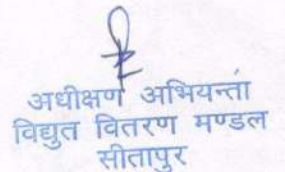 अधीक्षण अभियन्ता
विद्युत वितरण मण्डल
सीतापुर